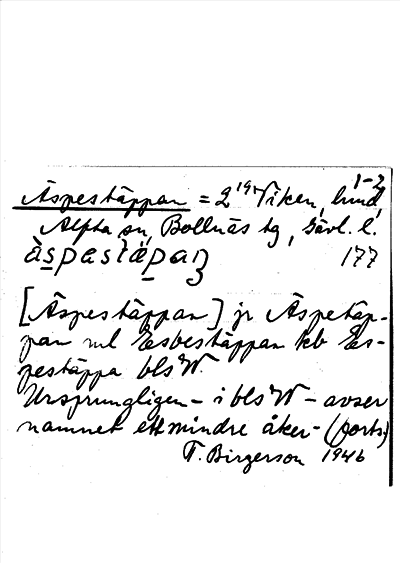 1-2
Äspestäppan = 2 19/ Viken, hmd,
Alfta sn, Bollnäs tg, Gävl. l.
äspestäpan 177
[Äspestäppan] jr Äspetäp-
pan ml Esbestäppan kb Es-
pestäppa bls W.
Ursprungligen - i bls W - avser
namnet ett mindre åker- (forts)
T. Birgerson 1946